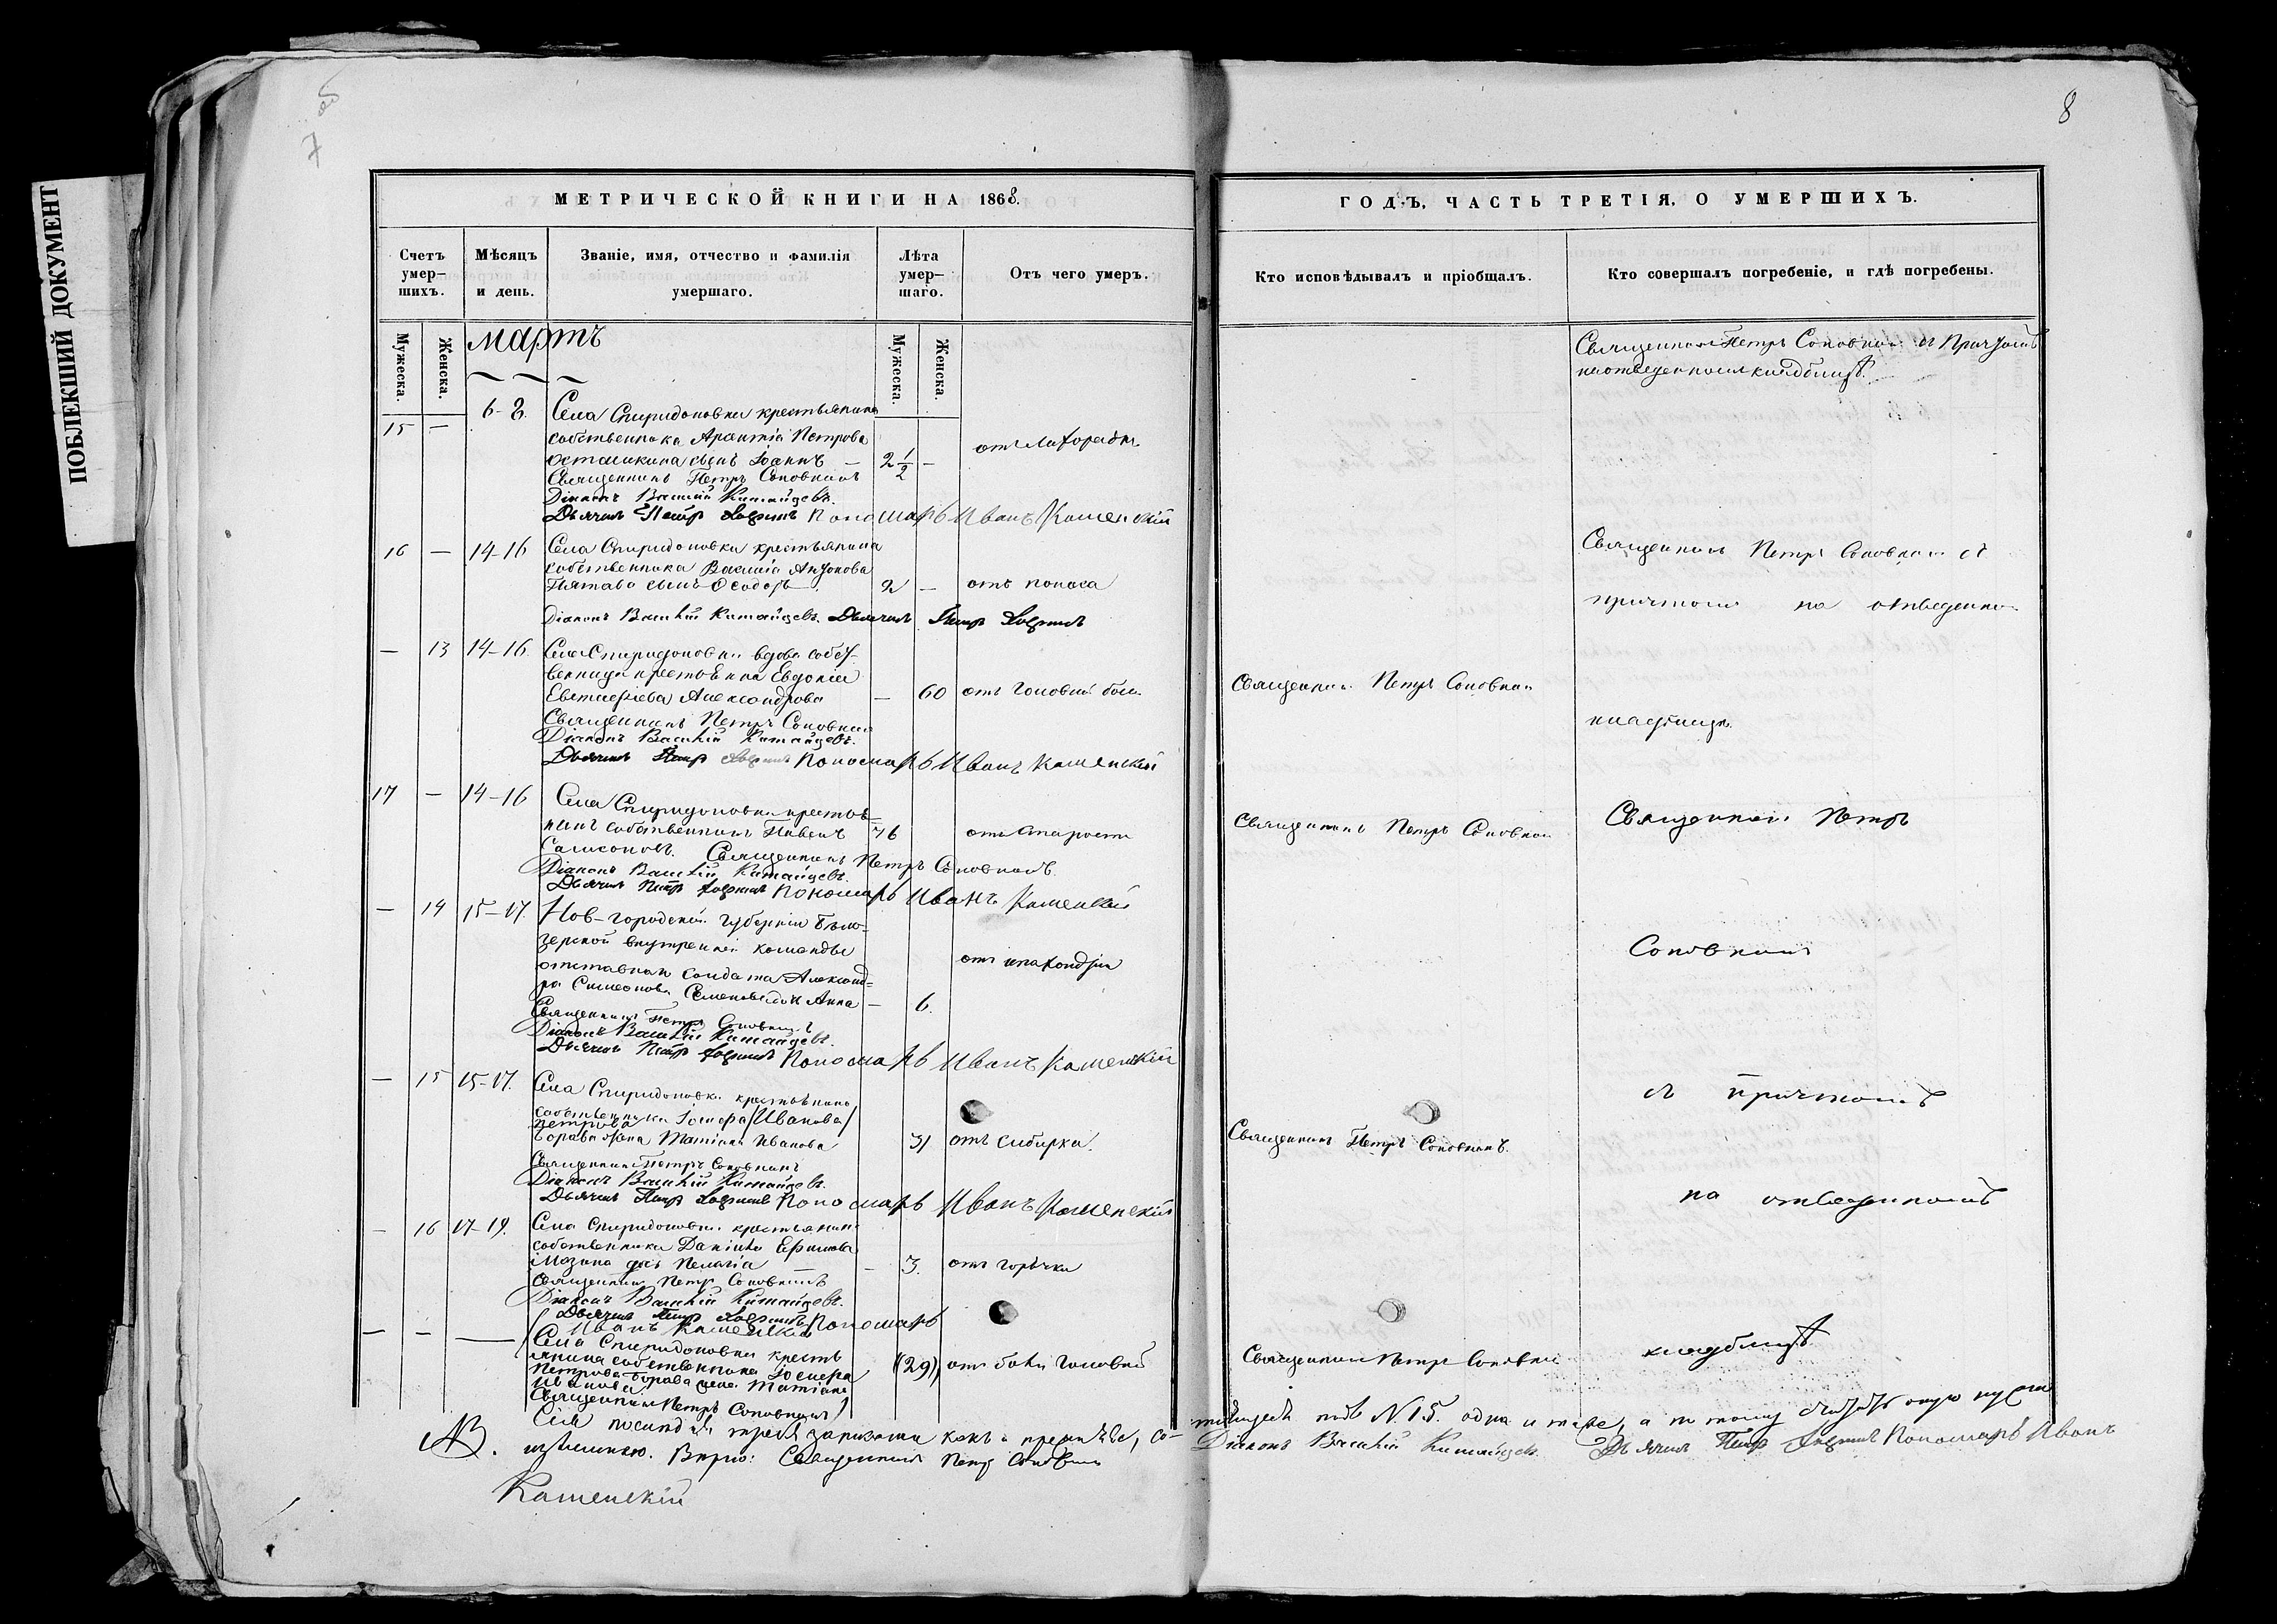 ПОБЛЕКШИЙ ДОКУМЕНТ
7 об
8
МЕТРИЧЕСКОЙ КНИГИ НА 1868.
ГОДЪ, ЧАСТЬ ТРЕТІЯ, О УМЕРШИХЪ.
Счетъ умер-шихъ.
Мѣсяцъ и день.
Званіе, имя, отчество и фамилія умершаго.
Лѣта умер-шаго.
Отъ чего умеръ.
Кто исповѣдывалъ и пріобщалъ.
Кто совершалъ погребеніе, и гдѣ погребены.
Мужеска.
Женска.
Мужеска.
Женска.
мартъ
Священникъ Петръ Соповкинъ съ Причтомъ
на отведенномъ кладбищѣ.
6-8. Села Спиридоновки крестьянина
15 — собственника Арсентія Петрова
Осташкина сынъ Іоаннъ — 2 1/2 —
Священникъ Петръ Соповкинъ
Діаконъ Василій Китайцевъ.
Дьячекъ Петръ Пономарь Иванъ Каменскій
16 — 14-16 Села Спиридоновки крестьянина
собственника Василія Антонова
сынъ Ѳеодоръ 2 — отъ поноса
Діаконъ Василій Китайцевъ. Дьячекъ Петръ
Священникъ Петръ Соповкинъ съ
причтомъ на отведенно
— 13 14-16. Села Спиридоновки вдова собст-
венница Евдокія
Александрова — 60 отъ головной боли
Священникъ Петръ Соповкинъ
Священникъ Петръ Соповкинъ
Діаконъ Василій Китайцевъ.
Дьячекъ Петръ Пономарь Иванъ Каменскій
кладбищѣ.
17 — 14-16 Села Спиридоновки крестья-
нинъ собственникъ 76 отъ старости
Самсоновъ. Священникъ Петръ Соповкинъ.
Діаконъ Василій Китайцевъ.
Дьячекъ Петръ Пономарь Иванъ Каменскій
Священникъ Петръ Соповкинъ
Священникъ Петръ
— 14 15-17. Нов-городской губерніи Бѣло-
зерской внутренней команды
отставнаго солдата Александ-
ра Симеонова Анна — 6.
Священникъ Петръ Соповкинъ
Діаконъ Василій Китайцевъ.
Дьячекъ Петръ Пономарь Иванъ Каменскій
Соповкинъ
— 15 15-17. Села Спиридоновки крестьянина
собственника Іосифа /Иванова/
Петрова
жена Татіана Иванова 31 отъ сибирки.
Священникъ Петръ Соповкинъ
Діаконъ Василій Китайцевъ.
Дьячекъ Петръ Пономарь Иванъ Каменскій
Священникъ Петръ Соповкинъ.
съ причтомъ
на отведенномъ
— 16 17-19. Села Спиридоновки крестьянина
собственника Даніила Ефимова
Мазина дочь Пелагія — 3. отъ горячки
Священникъ Петръ Соповкинъ
Діаконъ Василій Китайцевъ.
Дьячекъ Петръ Пономарь
Иванъ Каменскій
— — — Села Спиридоновки кресть
янина собственника Іосифа
Петрова жена Татіана
Иванова (29) отъ боли головной
Священникъ Петръ Соповкинъ
Священникъ Петръ Соповкинъ
кладбищѣ
NB. Сія послѣдняя записана какъ и
подъ N 15. одна и таже, а по тому считать
излишнею. Вѣрно: Священникъ Петръ Соповкинъ
Діаконъ Василій Китайцевъ. Дьячекъ Петръ Пономарь Иванъ
Каменскій